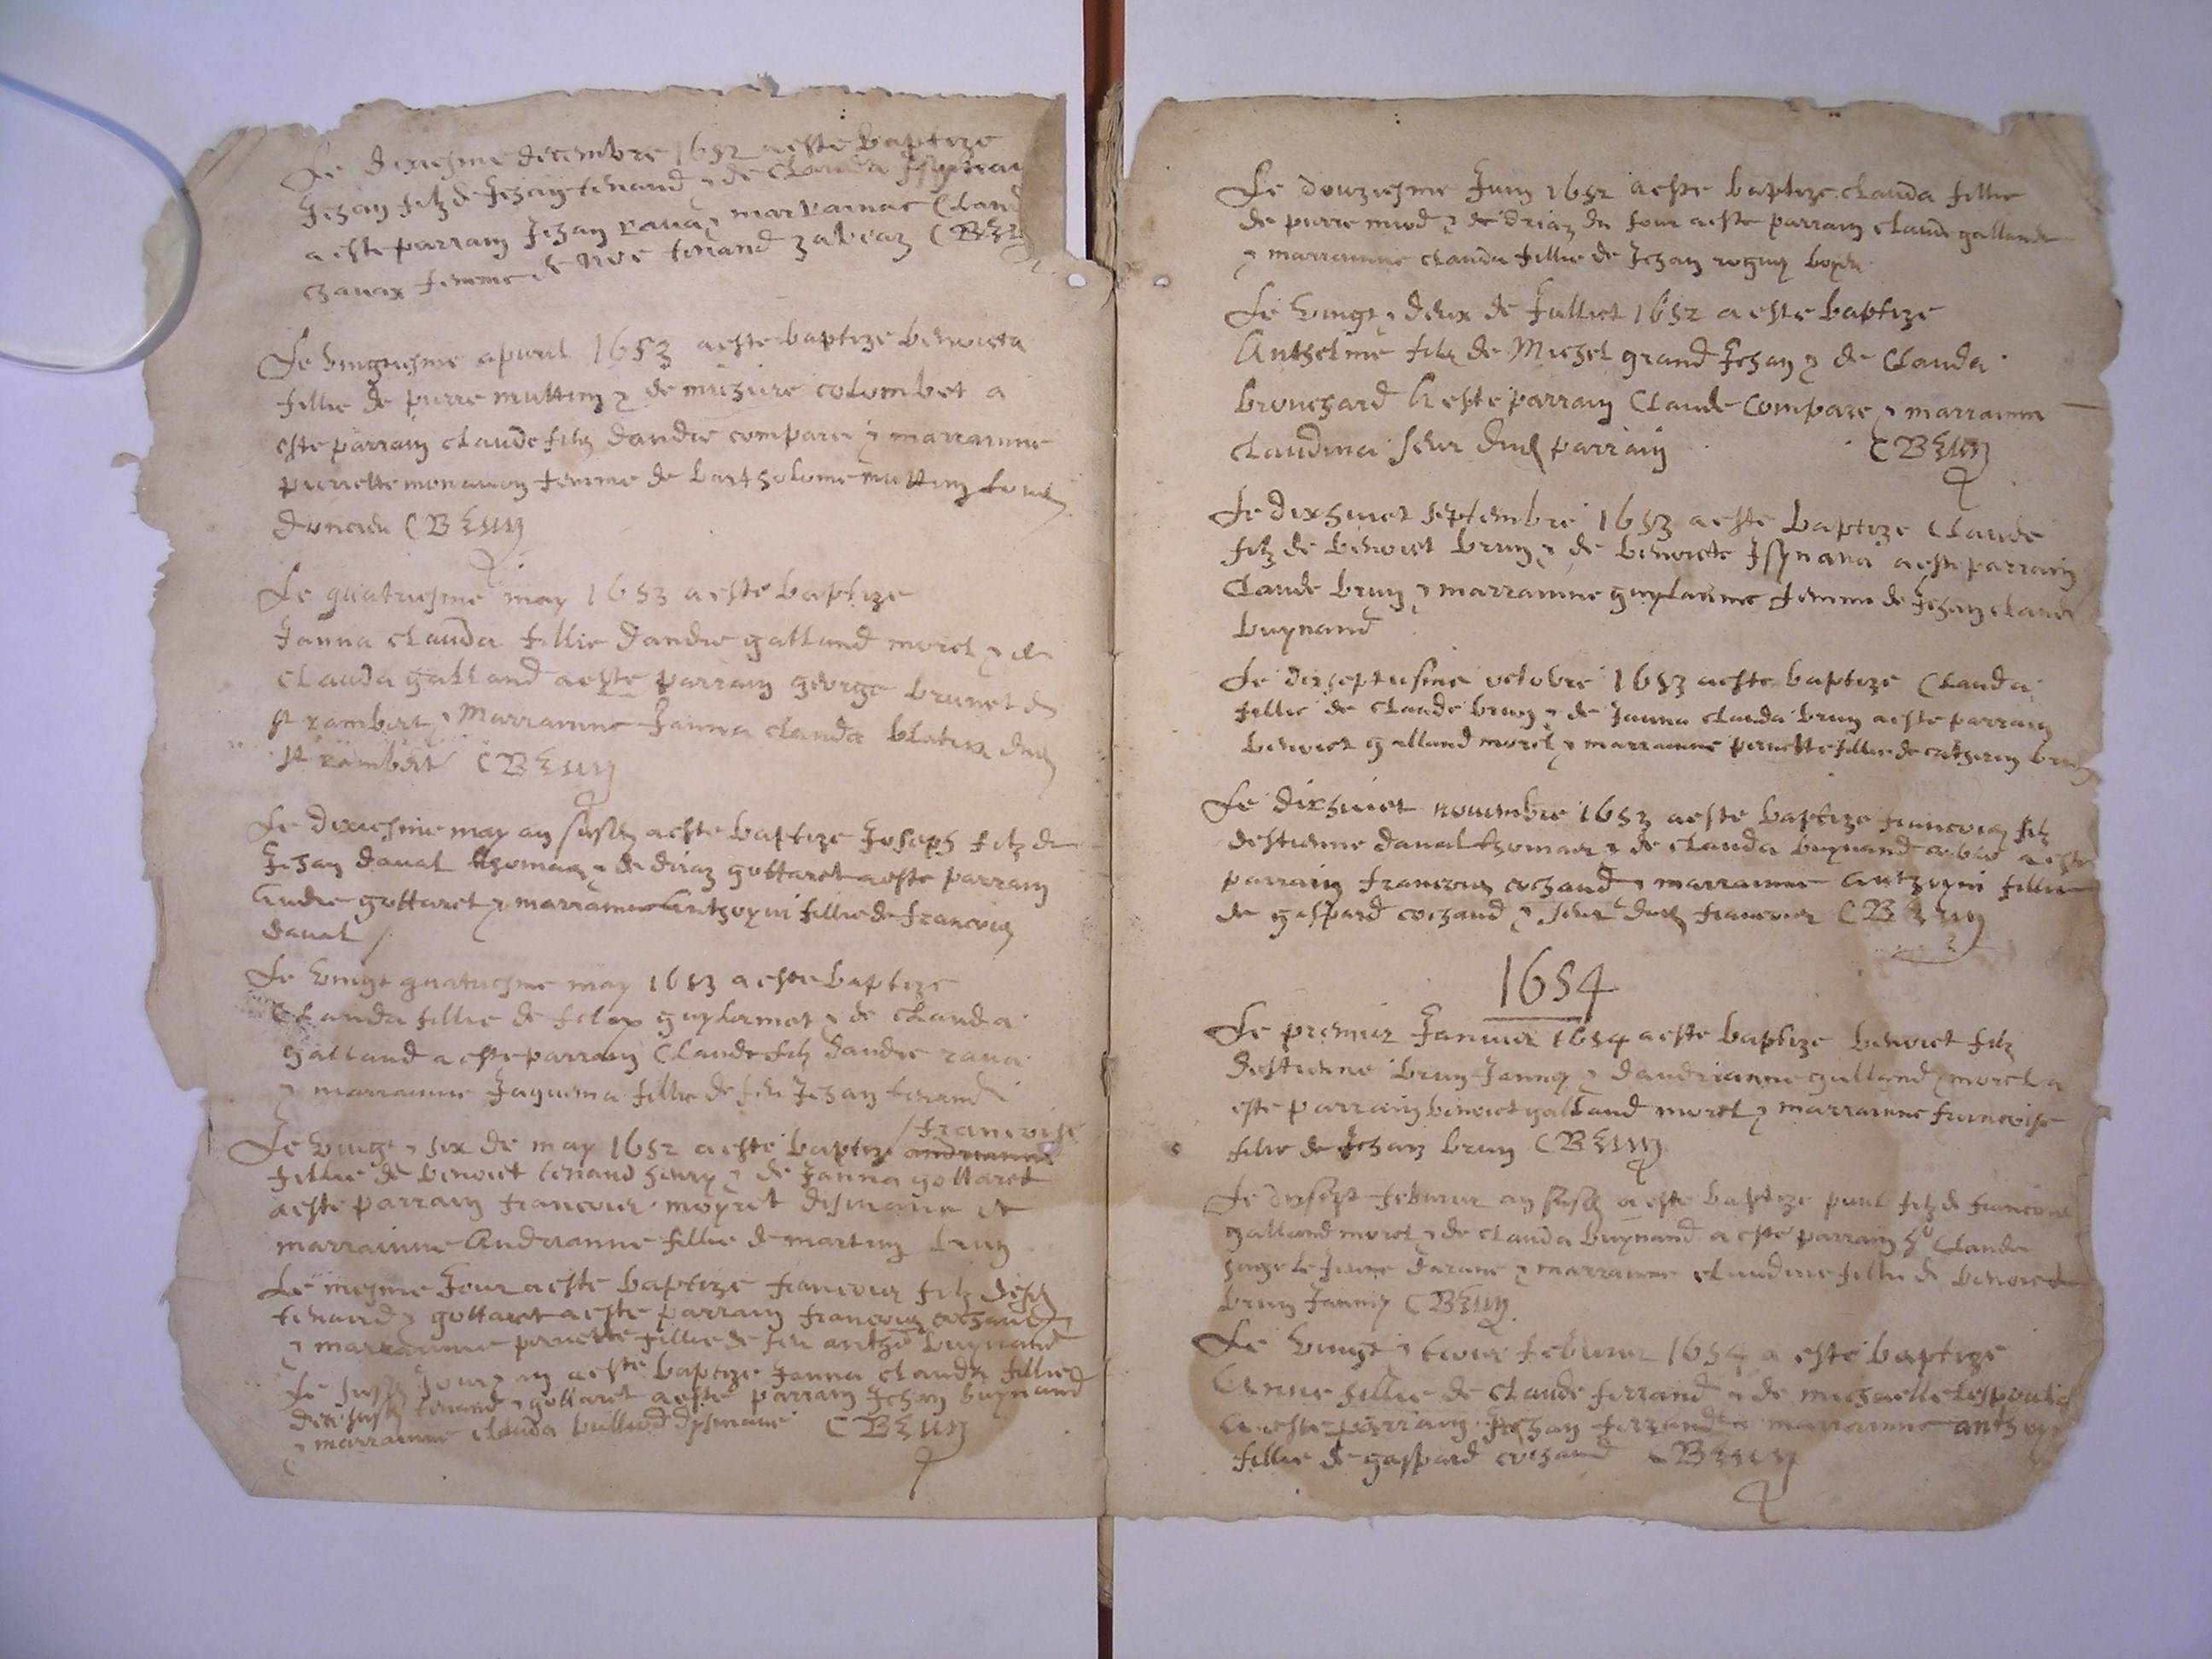 Le dixiesme decembre 1652 a este baptize
Jehan filz de Jehan tenand & de Clauda
a este parrain Jehan rava & marrainne Claud
chavax femme de Noe tenand CBrun
Le vingtiesme apvril 1653 a este baptize benoista
fillie de pierre muttin & de colombet a
este parrain claude filz dandre compare & marrainne
pernette femme de bartholome muttin
CBrun
Le quatriesme may 1653 a este baptize
Janna clauda fillie dandre galland morel & de
clauda galland a este parrain george brunet de
st rambert & Marrainne Janna clauda dud
st rambert CBrun
Le dixiesme may an susd a este baptize Joseph filz de
Jehan daval thomas & de gottaret a este parrain
Andre gottaret & marrainne Anthoyni fillie de francois
daval
Le vingt quatriesme may 1653 a este baptize
Clauda fillie de felix guylermet & de clauda
galland a este parrain Claude filz dandre rava
& marrainne Jaquema fillie de feu Jehan tenand
francoise
Le vingt & six de may 1652 a este baptize andrianne
fillie de benoiet tenand & de Janna gottaret
a este parrain francois moyret de
marrainne Andrianne fillie de martin brun
Le mesme Jour a este baptize francois filz desd
tenand & gottaret a este parrain francois cochand
& marrainne pernette fillie de feu anthe buynand
Le susd Jour & an a este baptize Janna clauda fillie
desd susd tenand & gottaret a este parrain Jehan buynand
& marrainne clauda bulliod CBrun
Le douziesme Juin 1652 a este baptize clauda fillie
de pierre & de du four a este parrain claude galland
& marrainne clauda fillie de Jehan
Le vingt & deux de Julliet 1652 a este baptize
Anthelme filz de Michel grand Jehan & de Clauda
brouchard A este parrain Claude Compare & marrainne
claudina seur dud parrain CBrun
Le dixhuiet septembre 1653 a este baptize Claude
filz de benoiet brun & de benoiete a este parrain
Claude brun & marrainne guylaume femme de Jehan claude
buynand
Le dixseptiesme octobre 1653 a este baptize Clauda
fillie de claude brun & de Janna clauda brun a este parrain
benoiet galland morel & marrainne pernette fillie de catherin brun
Le dixhuiet novembre 1653 a este baptize francois filz
destienne daval thomas & de clauda buynand a este
parrain francois cochand & marrainne Anthoyni fillie
de gaspard cochand & seur dud francois CBrun
1654
Le premier Janvier 1654 a este baptize benoiet filz
destienne brun Janny & dandrianne galland morel a
este parrain benoiet galland morel & marrainne francoise
filie de Jehan brun CBrun
Le dixsept febvrier an susd a este baptize paul filz de francois
galland morel & de clauda buynand a este parrain Claude
le Jeune & marrainne claudine fillie de benoiet
brun Janny CBrun
Le vingt & trois febvrier 1654 a este baptize
Anne fillie de claude ferrand & de michaelle
A este parrain Jehan ferrand & marrainne anthoy
fillie de gaspard cochand CBrun